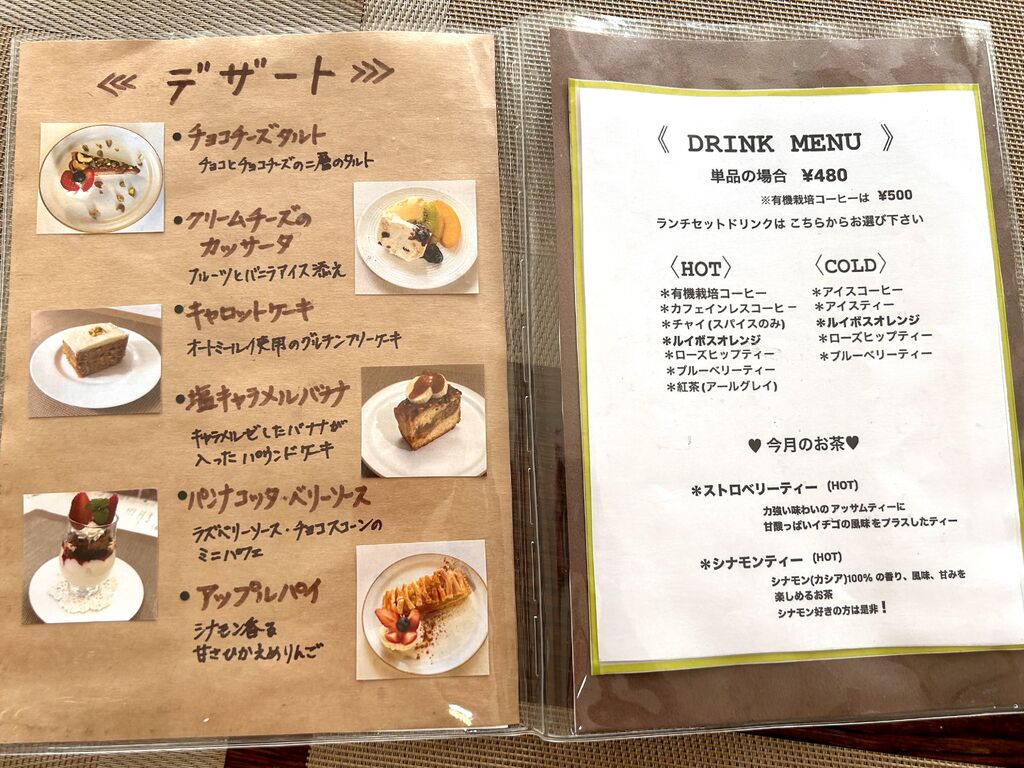 デザート
• チョコチーズタルト
チョコとチョコチーズの二層のタルト
• クリームチーズの
カッサータ
フルーツとバニラアイス添え
• キャロットケーキ
オートミール使用のグルテンフリーケーキ
• 塩キャラメルバナナ
キャラメルゼしたバナナが
入ったパウンドケーキ
• パンナコッタ・ベリーソース
ラズベリーソース・チョコスコーンの
ミニパフェ
• アップルパイ
シナモン香る
甘さひかえめりんご
《 DRINK MENU 》
単品の場合 ¥480
※有機栽培コーヒーは ¥500
ランチセットドリンクは こちらからお選び下さい
〈HOT〉
＊有機栽培コーヒー
＊カフェインレスコーヒー
＊チャイ (スパイスのみ)
＊ルイボスオレンジ
＊ローズヒップティー
＊ブルーベリーティー
＊紅茶 (アールグレイ)
〈COLD〉
＊アイスコーヒー
＊アイスティー
＊ルイボスオレンジ
＊ローズヒップティー
＊ブルーベリーティー
♥ 今月のお茶♥
＊ストロベリーティー (HOT)
力強い味わいの アッサムティーに
甘酸っぱいイチゴの風味 をプラスしたティー
＊シナモンティー (HOT)
シナモン(カシア)100% の香り、風味、甘みを
楽しめるお茶
シナモン好きの方は是非！